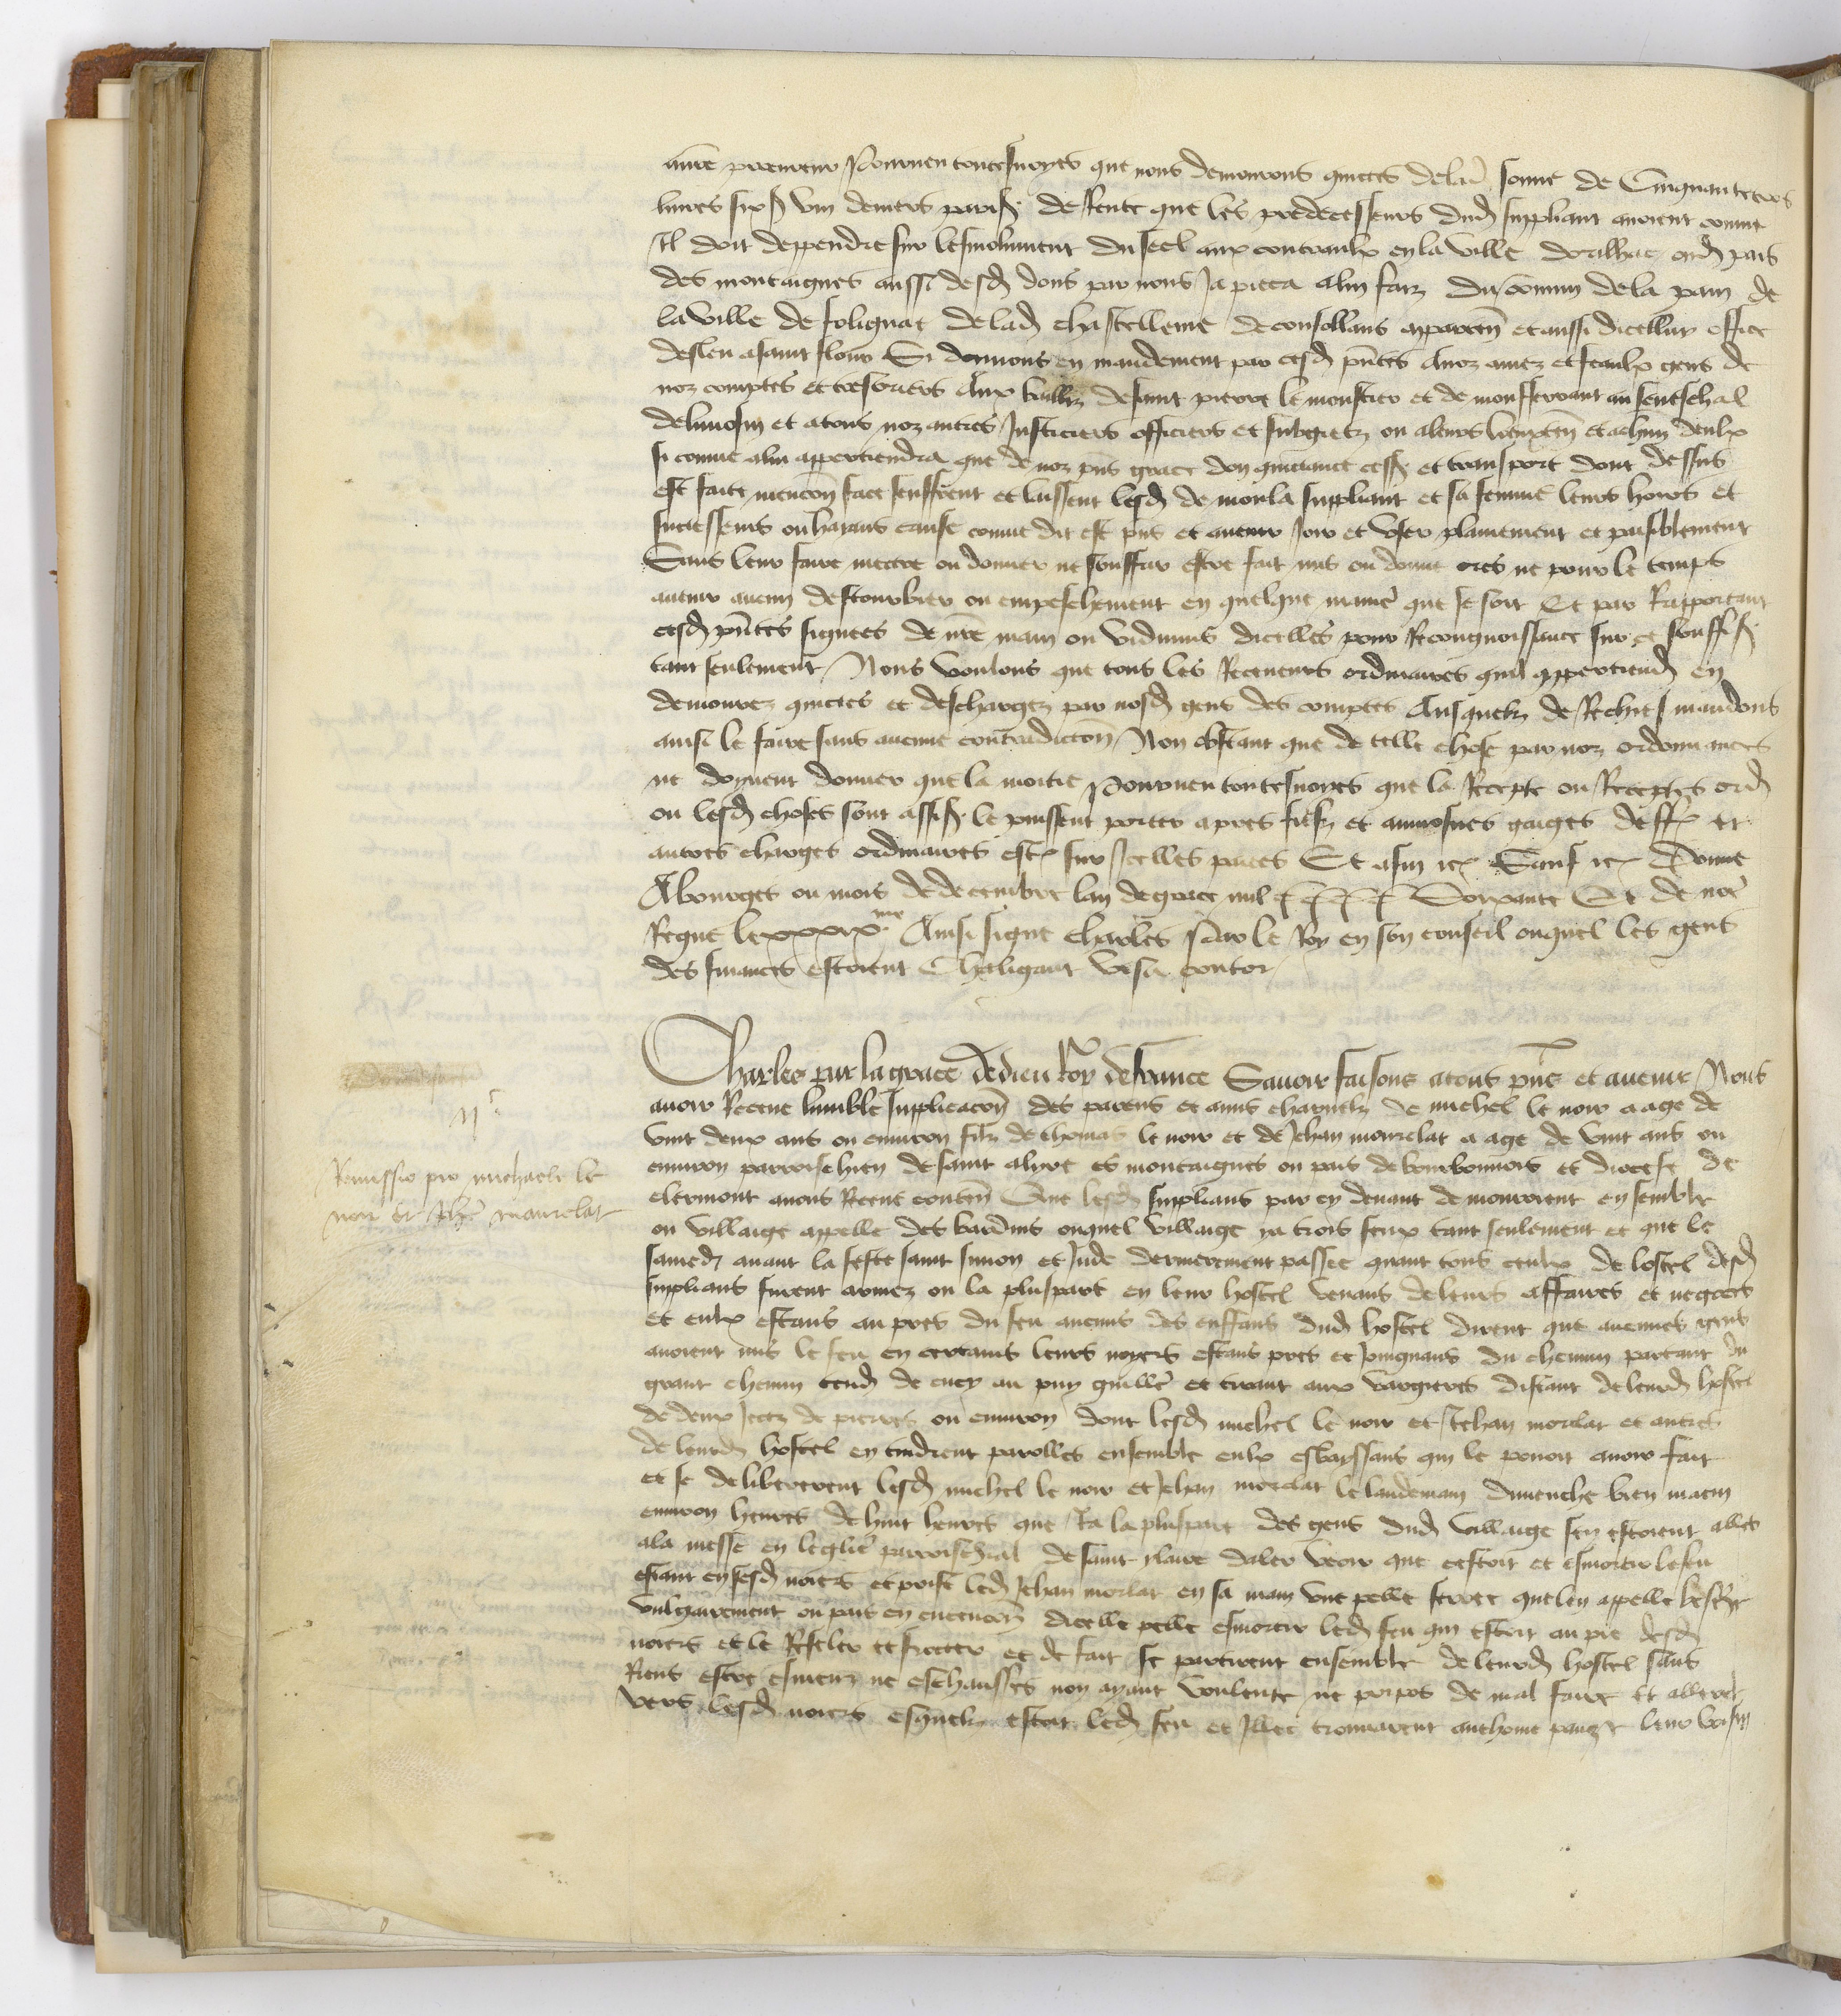 autre pourveu toutesvoyes que nous demourons quictes de la somme de Cinquante trois
livres six s. viii deniers paris. de Rente que les predecesseurs dud suppliant avoient comme
Il doit deppendre sur lesmolument du seel aux contraulx en la ville dorilhac oud pais
des montaignes aussi desd dons par nous Ja pieca a luy faiz du commun de la paix de
la ville de solignac de lad chastellenie de consollans et aussi dicelluy office
desleu a saint flour Si donnons en mandement par cesd pntes a noz amez et feaulx gens de
noz comptes et tresoriers Aux bailliz de saint pierre le moustier et de montferrant au seneschal
de limosin et a tous noz autres Justiciers officiers et subgietz ou a leurs lieuxten et a chun deulx
si comme a luy appertiendra que de noz pns grace don quictance cess. et transport dont dessus
est faicte mencon face seuffrent et laissent lesd de monla suppliant et sa femme leurs hoirs et
successeurs ou haians cause comme dit est pns et avenir Joir et user plainement et paisiblement
Sans leur faire mectre ou donner ne souffrir estre fait mis ou donne ores ne pour le temps
avenir aucun destourbier ou empeschement en quelque maniere que se soit Et par Rapportant
cesd pntes signees de nre main ou vidimus dicelles pour Recongnoissance sur ce souffis.
tant seulement Nous voulons que tous les Receveurs ordinaires quil appertiend en
demourez quictes et deschargez par nosd gens des comptes Ausquelz de Rechief mandons
ainsi le faire sans aucune contradicton Non obstant que de telle chose par noz ordonnances
ne doyvent donner que la moitie Pourveu toutesvoyes que la Recepte ou Receptes ord
ou lesd choses sont assis. le puissent porter apres fiefz et aumosnes gaiges doff. et
autres charges ordinaires est. sur Icelles prises Et afin &c Sauf &c Donne
A bourges ou mois de decembre lan de grace mil CCCC Soixante Et de nre
Regne le xxxix.me Ainsi signe Charles Par le Roy en son conseil ouquel les gens
des finances estoient Chaligaut Visa contor

Charles par la grace de dieu Roy de france Savoir faisons a tous pns et avenir Nous
avoir Receue lumble supplicacon des parens et amis charnelz de michel le noir aage de
vint deux ans ou environ filz de thomas le noir et de Jehan mourelat aage de vint ans ou
environ parroischien de saint alyre es montaignes ou pais de bourbonnois et diocese de
clermont avons Receue conten Que lesd supplians par cy devant demourerent ensemble
ou villaige appelle des bardins ouquel villaige ya trois feux tant seulement et que le
samedi avant la feste saint simon et Jude derrenierement passee quant tous ceulx de lostel desd
supplians furent arivez ou la pluspart en leur hostel venans de leurs affaires et negoces
et eulx estans au pres du feu aucuns des enffans dud hostel dirent que aucunes gens
avoient mis le feu en certains leurs noyers estans pres et Joingnans du chemin partant du
grant chemin tend de cucy au puy guille et tirant aux vargieres distant de leurd hostel
de deux Jectz de pierres ou environ dont lesd michel le noir et Jehan morelat et autres
de leurd hostel en tindrent parolles ensemble eulx esbayssans qui le povoit avoir fait
et se delibererent lesd michel le noir et Jehan morelat le landemain dimenche bien matin
environ heures de huit heures que Ja la pluspart des gens dud villaige sen estoient allez
a la messe en leglise parroischial de saint alaire daler veoir que cestoit et esmortir le feu
estant en sesd noiers et prist led Jehan morelat en sa main une pelle ferree que len appelle
vulgairement ou pais en entencon dicelle pelle esmortir led feu qui estoit au pie desd
noiers et le Reseler et frotter et de fait se partirent ensemble de leurd hostel sans
Riens estre esmeuz ne eschauffes non ayant voulente ne propos de mal faire et allerent
vers lesd noiers esquelz estoit led feu et Illec trouverent anthoine leur voisin

Remissio pro michaele le
noir et Johe mourelat